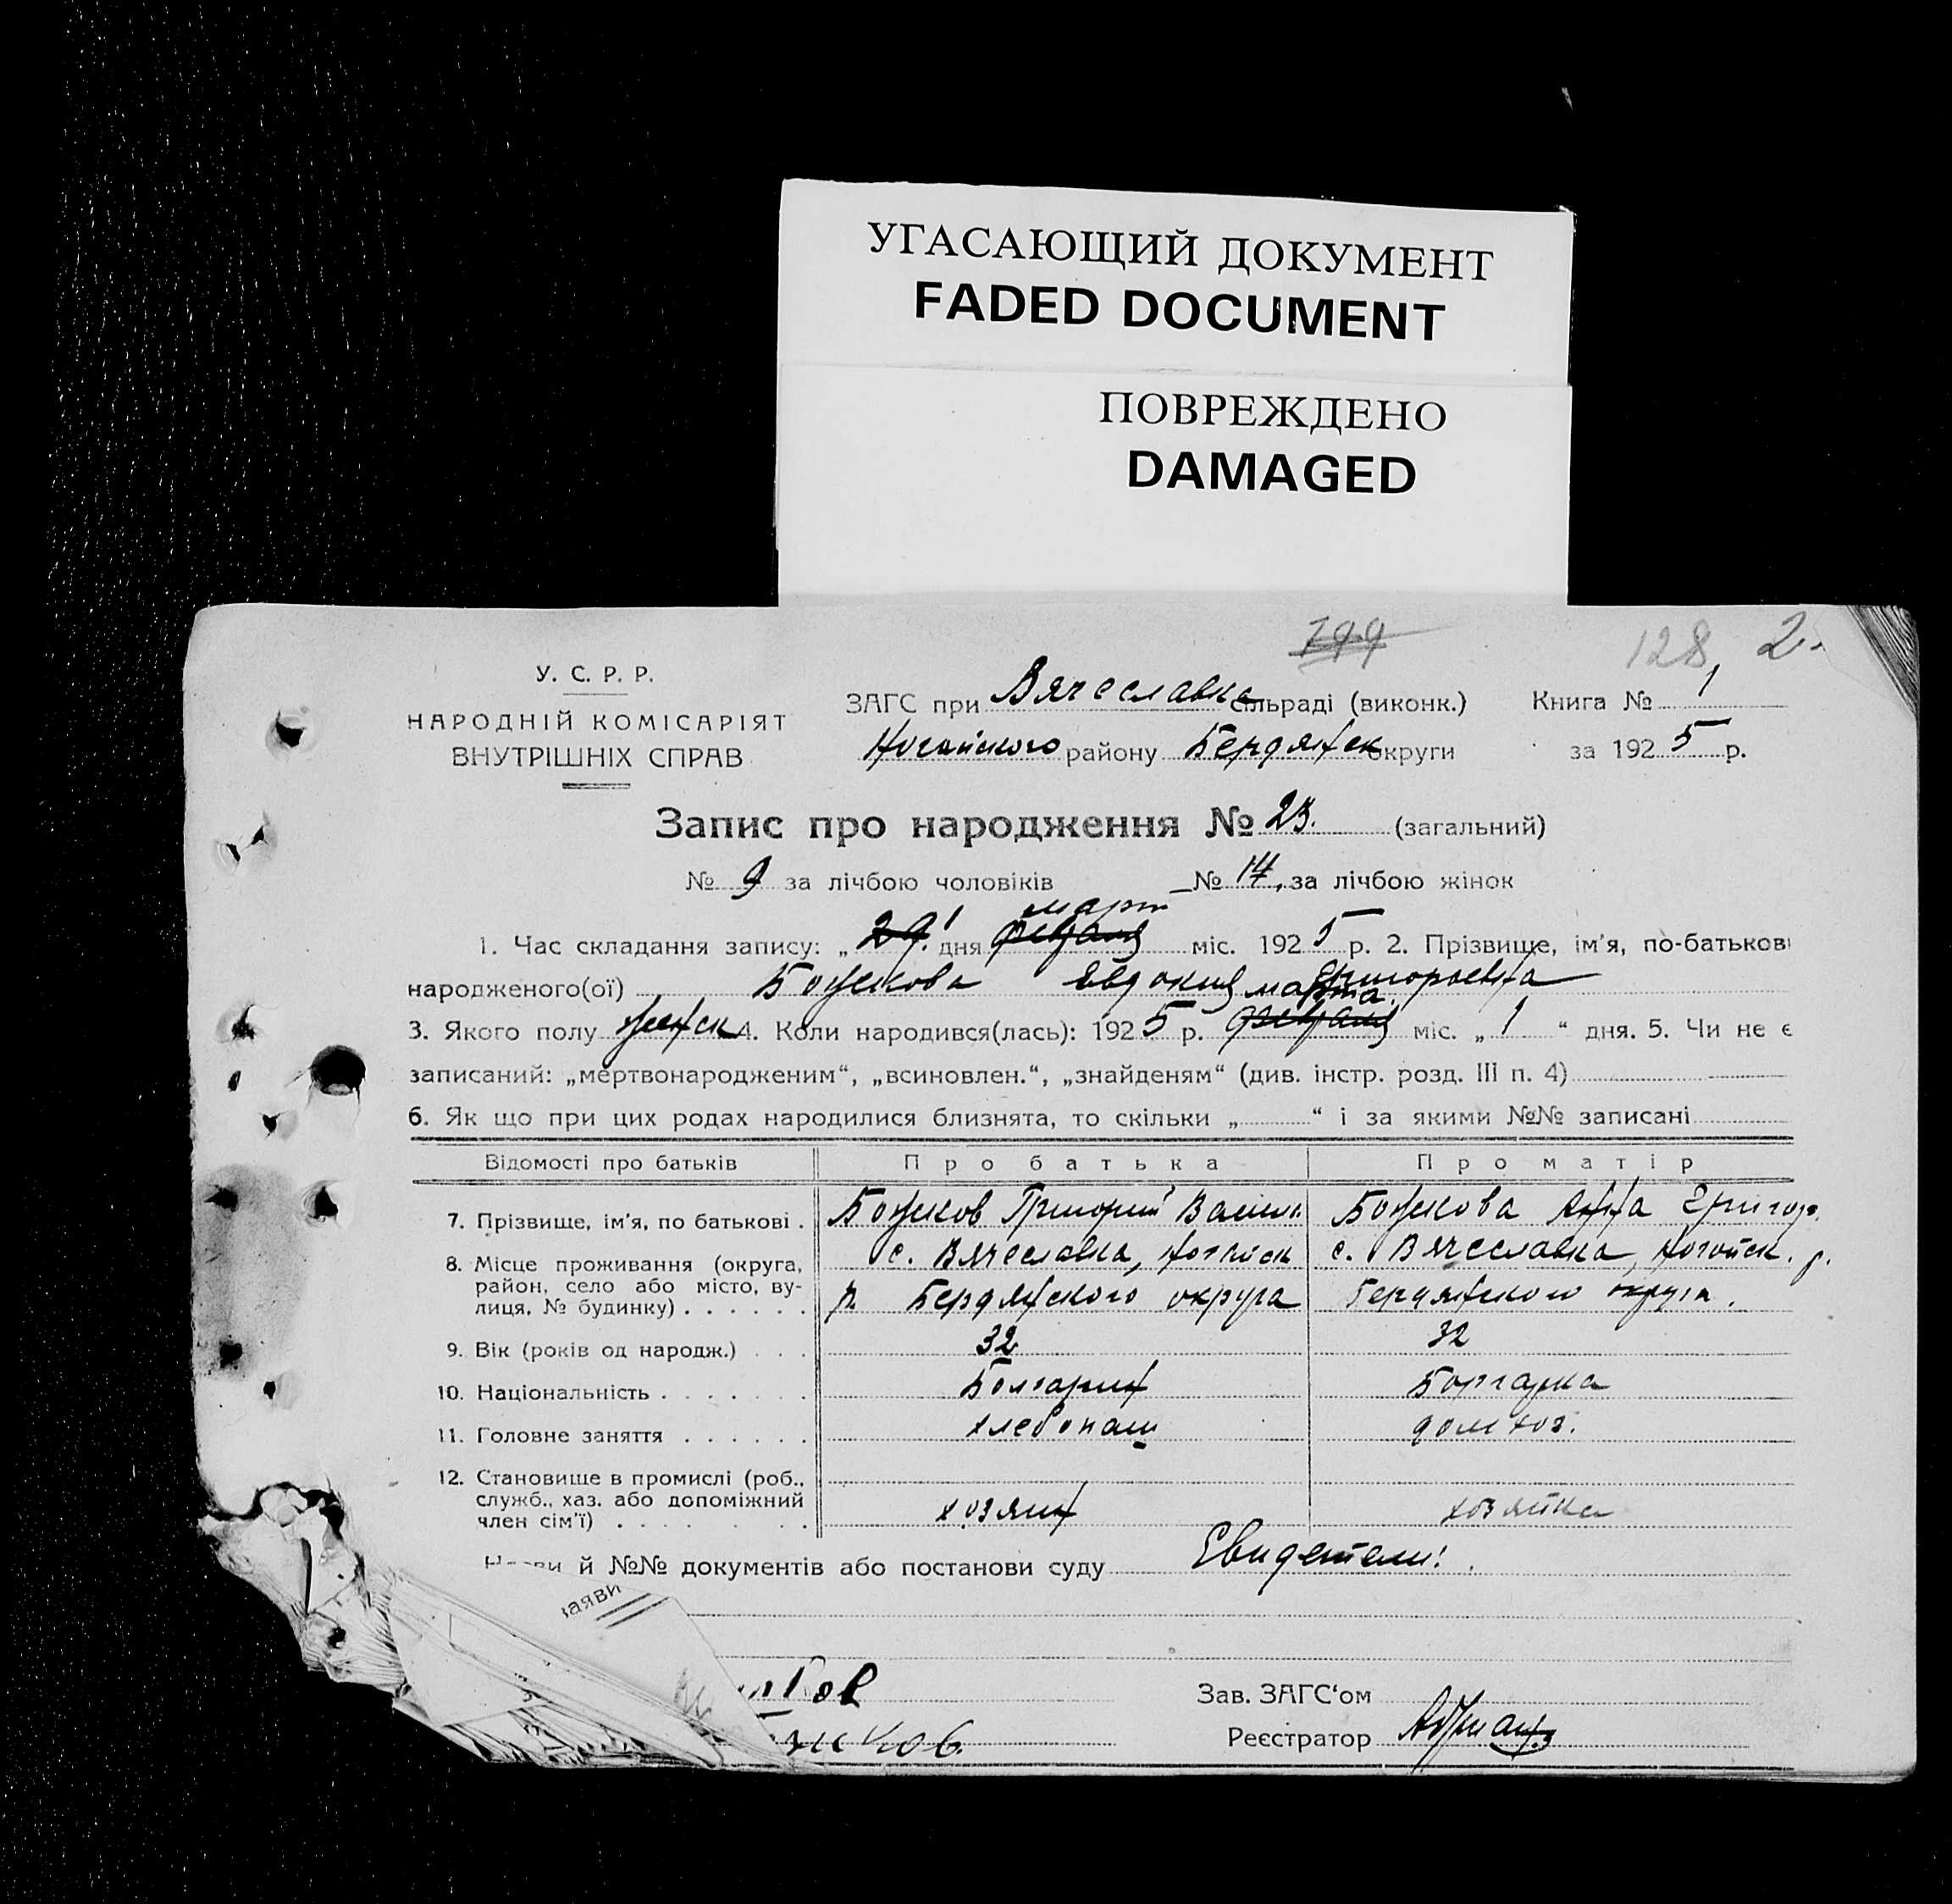 УГАСАЮЩИЙ ДОКУМЕНТ
FADED DOCUMENT
ПОВРЕЖДЕНО
DAMAGED
199
128 2.
У. С. Р. Р.
НАРОДНІЙ КОМІСАРІЯТ
ВНУТРІШНІХ СПРАВ
ЗАГС при Вячеславке сільраді (виконк.) Книга № 1
Ногайского району Бердянск округи за 1925 р.
Запис про народження № 23. (загальний)
№ 9 за лічбою чоловіків № 14. за лічбою жінок
март
1. Час складання запису: „29. 1 дня февраля міс. 1925 р. 2. Прізвище, ім'я, по-батькові
народженого(ої) Божкова Евдокия Григорьевна
марта
3. Якого полу женск 4. Коли народився(лась): 1925 р. февраля міс. „1“ дня. 5. Чи не є
записаний: „мертвонародженим“, „всиновлен.“, „знайденям“ (див. інстр. розд. III п. 4)
6. Як що при цих родах народилися близнята, то скільки „ “ і за якими №№ записані
Відомості про батьків Про батька Про матір
7. Прізвище, ім'я, по батькові . Божков Григорий Васил. Божкова Анна Григор.
8. Місце проживання (округа, с. Вячеславка, Ногайск с. Вячеславка, Ногайск. р.
район, село або місто, ву-
лиця, № будинку) . . . . . . р. Бердянского округа Бердянского округа.
9. Вік (років од народж.) . . . 32 32
10. Національність . . . . . Болгарин Болгарка
11. Головне заняття . . . . . . хлебопаш дом хоз.
12. Становище в промислі (роб.,
служб., хаз. або допоміжний
член сім'ї) . . . . . . хозяин хозяйка
й №№ документів або постанови суду Свидетели:
заяви
Зав. ЗАГС‘ом
Реєстратор